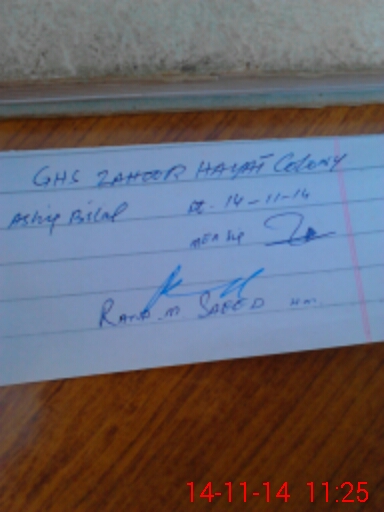 GHS ZAHOOR HAYAT Colony
Bilal Dt. 14-11-14
RANA.M SAEED HM.
14-11-14 11:25